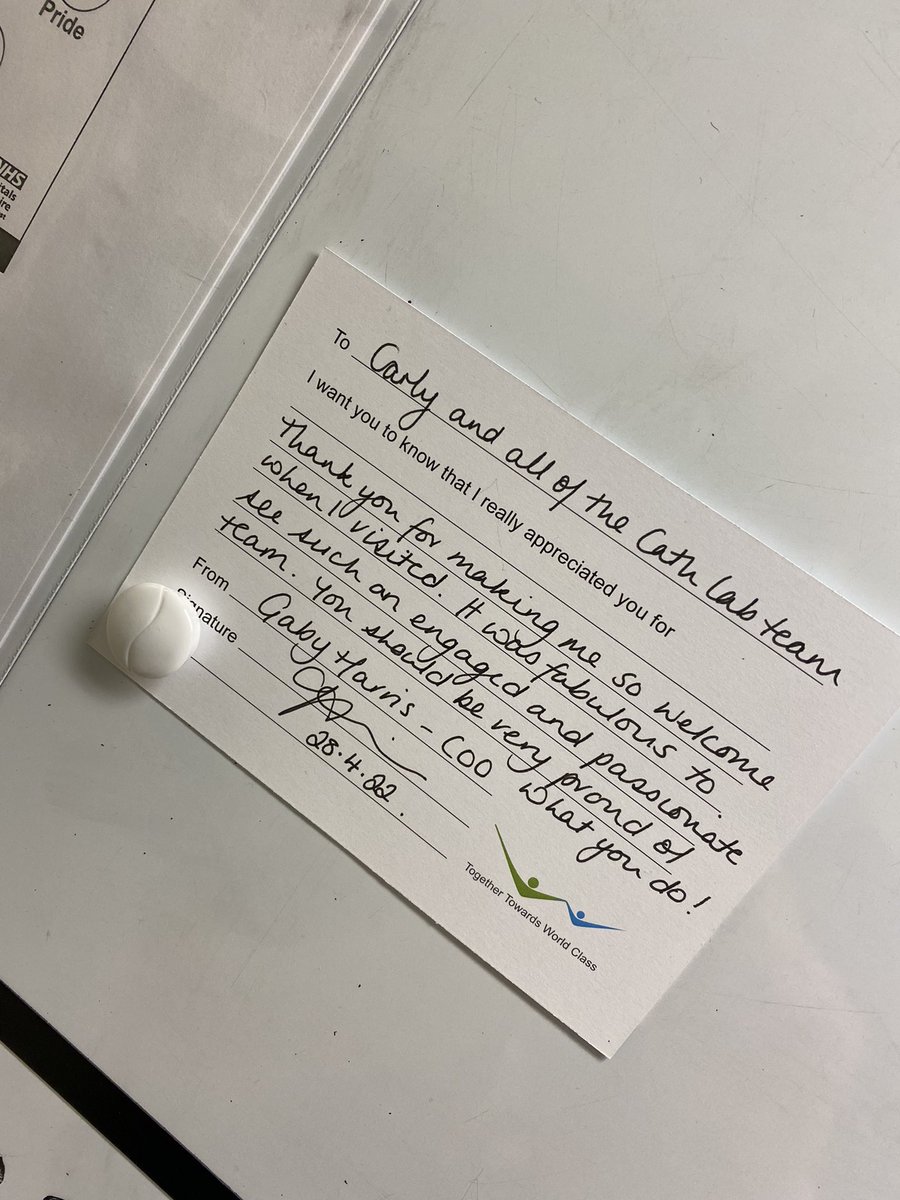 Pride
NHS
To Carly and all of the Cath Lab team
I want you to know that I really appreciated you for
Thank you for making me so welcome
when I visited. It was fabulous to
see such an engaged and passionate
team. You should be very proud of
what you do!
From Gaby Harris - COO
Signature
28.4.22.
Together Towards World Class